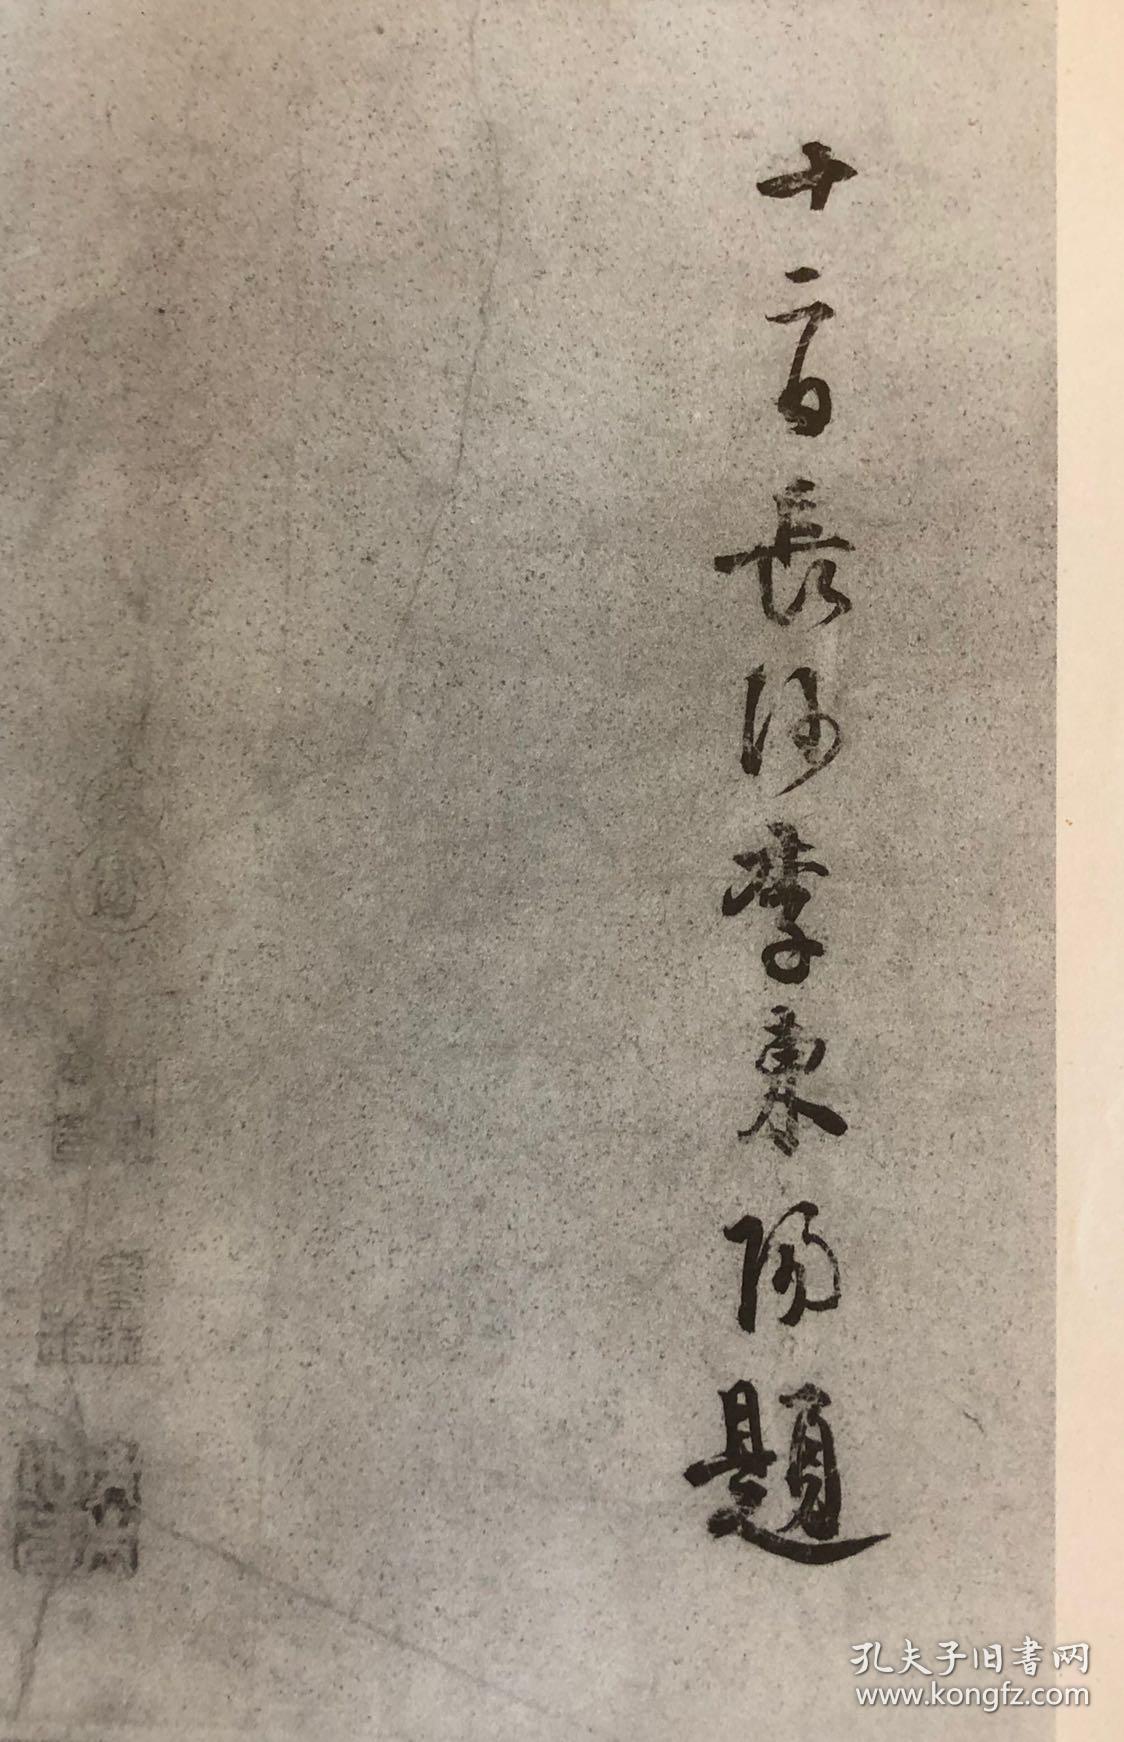 十二日長沙李東陽題
孔夫子旧書网
www.kongfz.com